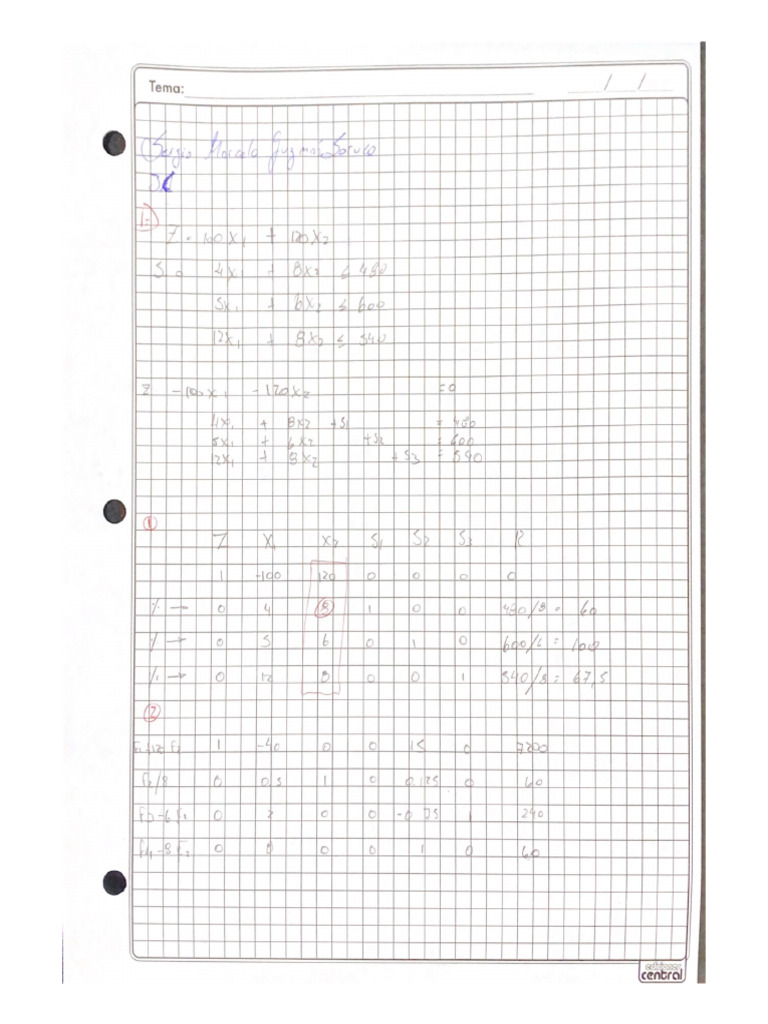 Tema: / /
Sergio Marcelo Guzmán
1-
Z = 100x1 + 120x2
S a 4x1 + 8x2 ≤ 480
5x1 + 6x2 ≤ 600
12x1 + 8x2 ≤ 540
Z -100x1 -120x2 =0
4x1 + 8x2 +S1 = 480
5x1 + 6x2 +S2 = 600
12x1 + 8x2 +S3 = 540
1
Z X1 X2 S1 S2 S3 R
1 -100 120 0 0 0 0
0 4 8 1 0 0 480/8 = 60
0 5 6 0 1 0 600/6 = 100
0 12 8 0 0 1 540/8 = 67,5
2
F1+12 F2 1 -40 0 0 15 0 7200
F2/8 0 0.5 1 0 0.125 0 60
F3-6F2 0 2 0 0 -0.75 1 240
F4-8F2 0 8 0 0 1 0 60
central